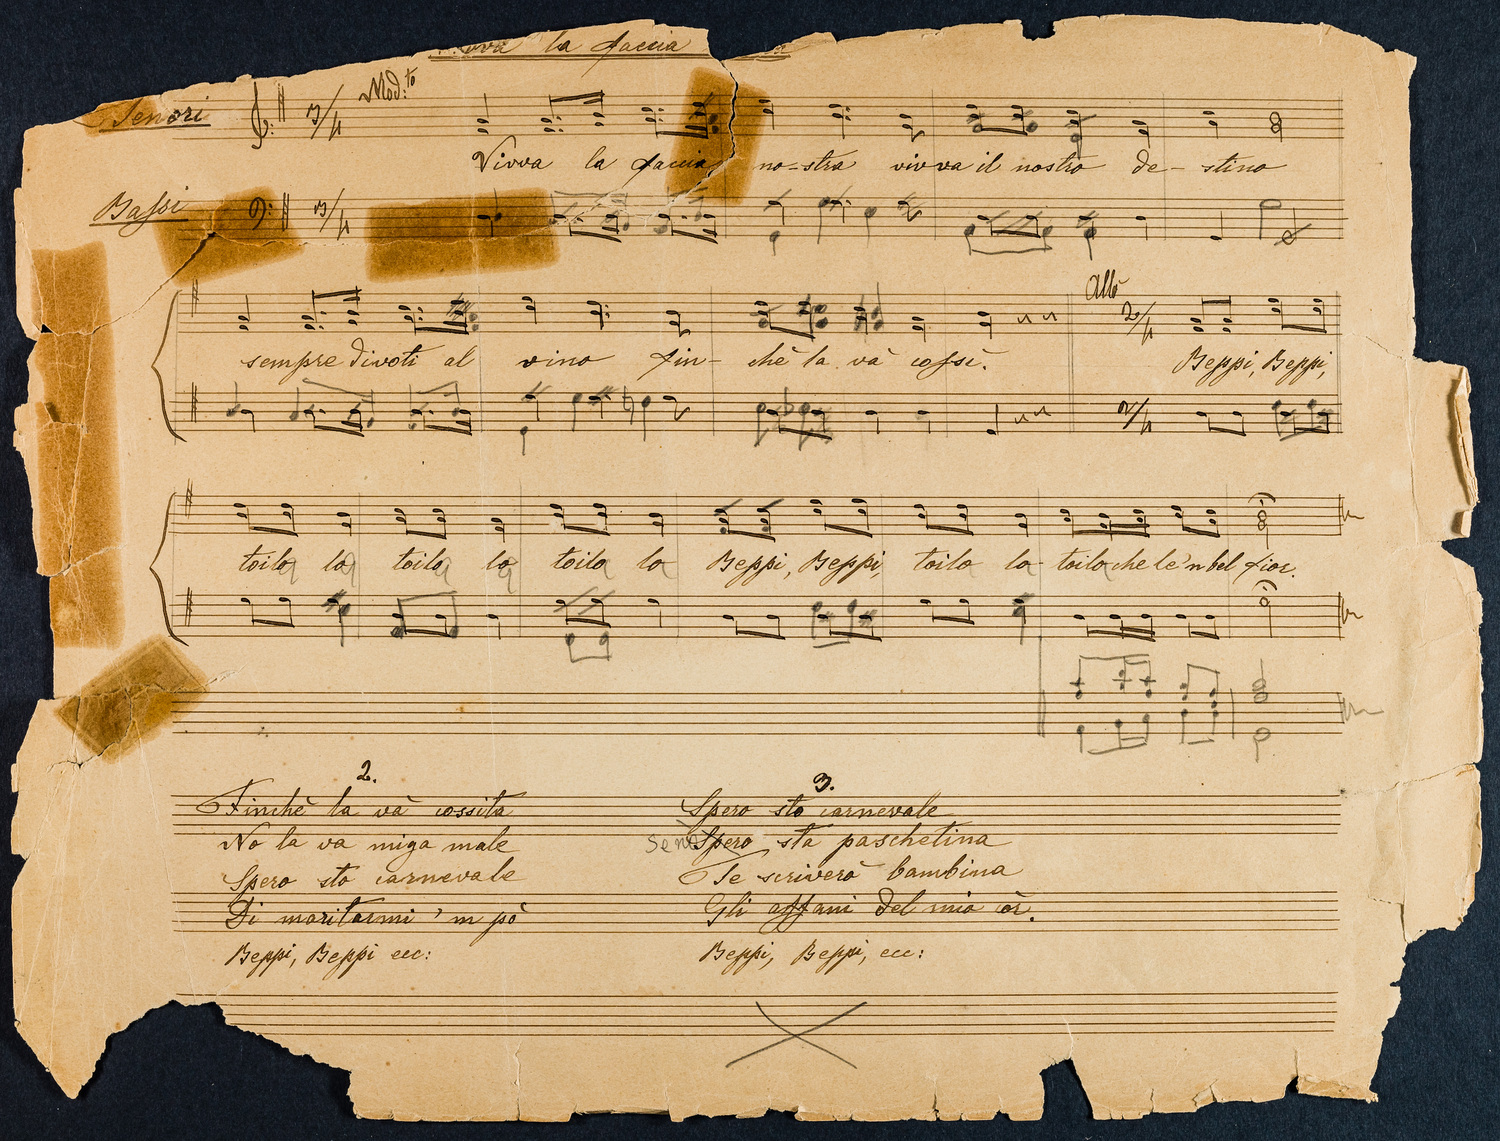 la faccia
Mod:to
Tenori
3/4
Vivva la faccia no-stra vivva il nostro de-stino
Bassi
3/4
Allo
2/4
sempre divoti al vino fin-chè la và cossì. Beppi, Beppi,
2/4
toila la toila la toila la Beppi, Beppi, toila la toila che le'n bel fior.
2.
Finchè la và cossita
No la va miga male
Spero sto carnevale
Di maritarmi 'n pò
Beppi, Beppi ecc:
3.
Spero sto carnevale
Spero sta paschetina
Te scriverò bambina
Gli affani del mio cör.
Beppi, Beppi, ecc: